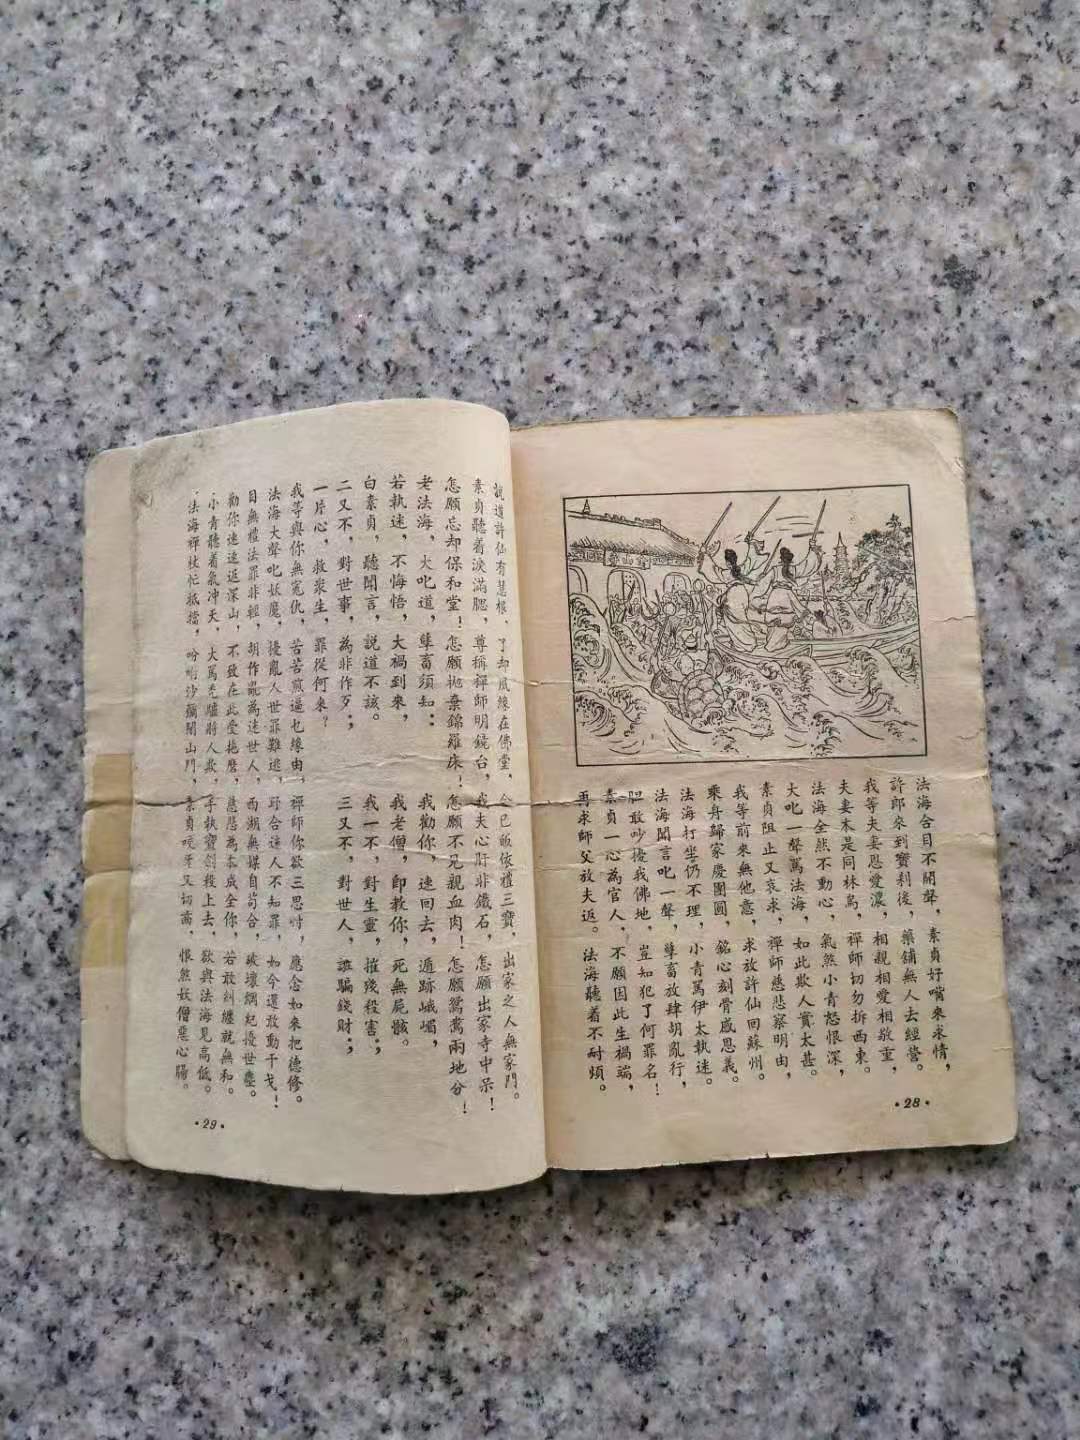 法海合目不開聲，素貞好嘴來求情，
許郎來到寶刹後，藥舖無人去經營。
我等夫妻恩愛濃，相親相愛相敬重，
夫妻本是同林鳥，禪師切勿拆西東。
法海全然不動心，氣煞小青怒恨深，
大叱一聲罵法海，如此欺人實太甚。
素貞阻止又哀求，禪師慈悲察明由，
我等前來無他意，求放許仙回蘇州。
乘舟歸家慶團圓，銘心刻骨感恩義。
法海打坐仍不理，小青罵伊太執迷。
法海聞言叱一聲，孽畜放肆胡亂行，
胆敢吵擾我佛地，豈知犯了何罪名！
素貞一心為官人，不願因此生禍端，
再求師父放夫返。法海聽着不耐煩。
·28·
說道許仙有慧根，了却風緣在佛堂，今已皈依禮三寶，出家之人無家門。
素貞聽着淚滿腮，尊稱禪師明鏡台，我夫心肝非鐵石，怎願出家寺中呆！
怎願忘却保和堂！怎願拋棄錦羅床！怎願不見親血肉！怎願鴛鴦兩地分！
老法海，大叱道，孽畜須知：我勸你，速回去，遁跡峨嵋，
若執迷，不悔悟，大禍到來，我老僧，即救你，死無屍骸。
白素貞，聽聞言，說道不該。我一不，對生靈，摧殘殺害；
二又不，對世事，為非作歹；三又不，對世人，誆騙錢財；
一片心，救衆生，罪從何來？
我等與你無冤仇，苦苦煎逼也緣由，禪師你欲三思忖，應念如來把德修。
法海大聲叱妖魔，擾亂人世罪難逃，野合迷人不知罪，如今還敢動干戈！
目無禮法罪非輕，胡作亂為迷世人，西湖無媒自苟合，破壞綱紀擾世塵。
勸你速速返深山，不致在此受拖磨，慈悲為本成全你，若敢糾纏就無和。
小青聽着氣冲天，大罵禿驢將人欺，手執寶劍殺上去，欲與法海見高低。
法海禪杖忙抵擋，吩咐沙彌關山門，素貞咬牙又切齒，恨煞妖僧惡心腸。
·29·